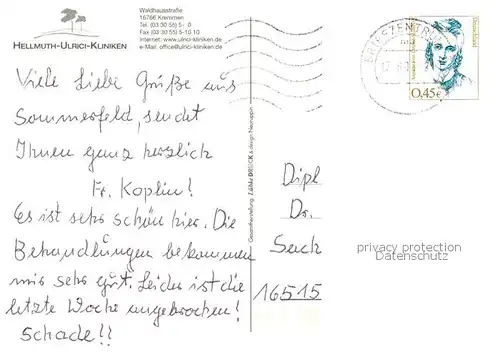 HELLMUTH-ULRICI-KLINIKEN
Waldhausstraße
16766 Kremmen
Tel. (03 30 55) 5- 0
Fax (03 30 55) 5-10 10
Internet: www.ulrici-kliniken.de
e-Mail: office@ulrici-kliniken.de
Viele Liebe Grüße aus
Sommerfeld, sendet
Ihnen ganz herzlich
Fr. Koplin!
Es ist sehr schön hier. Die
Behandlungen bekommen
mir sehr gut. Leider ist die
letzte Woche angebrochen!
Schade!!
BRIEFZENTRUM
0,45€
Deutschland
Dipl
Dr.
16515
privacy protection
Datenschutz